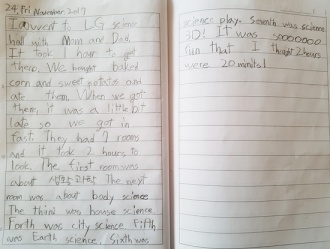 24, Fri November 2017
I went LG science
hall with Mom and Dad.
It took 1 hour to get
there. We bought baked
corn and sweet potatos and
ate them. When we got
there, it was a little bit
late so we got in
fast. They had 7 rooms
and it took 2 hours to
look. The first room was
about 생활과학 The next
room was about body science
The third was house science
Forth was city science. Fifth
was Earth science, Sixth was
science play. Seventh was science
3D! It was sooooooo
fun that I thought 2 hours
were 20 minits!